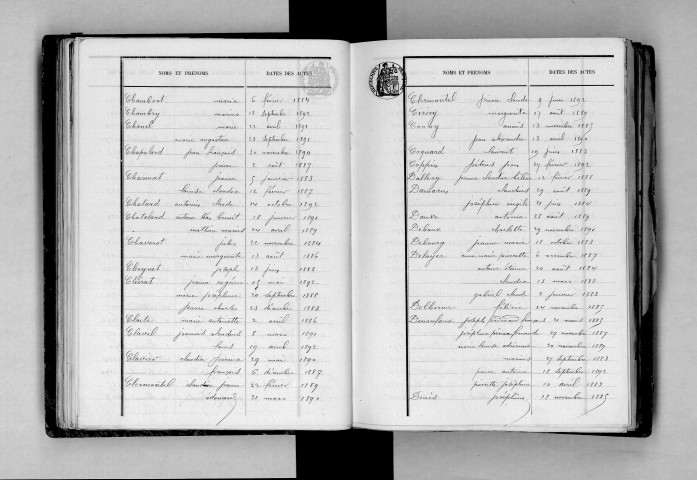 NOMS ET PRÉNOMS DATES DES ACTES
Chambost maria 6 février 1884
Chambry marius 18 septembre 1892
Chanel marie 22 avril 1891
marie augustine 23 septembre 1891
Chapeland jean françois 20 novembre 1890
pierre 2 août 1887
Charmat jeanne 5 janvier 1883
louise claudia 12 février 1887
Chatard antoine claude 14 octobre 1892
Chateland antoine benoit 18 janvier 1891
mathieu marius 24 avril 1889
Chaverot jules 22 novembre 1884
marie marguerite 13 août 1886
Cherquet joseph 12 juin 1888
Clérat jeanne eugénie 15 mai 1892
marie joséphine 20 septembre 1888
pierre charles 23 décembre 1883
Claite marie antoinette 2 avril 1886
Clavel jeannie claudius 8 mars 1891
louis 19 avril 1892
Clavier claudia 29 mai 1890
françois 6 décembre 1887
Clermontel claude pierre 22 février 1889
édouard 21 mars 1890
NOMS ET PRÉNOMS DATES DES ACTES
Clermontel pierre claude 9 juin 1892
marguerite 17 août 1889
anaïs 13 novembre 1885
jean alexandre 13 avril 1890
Coquard benoit 19 juin 1883
Coppin jean 29 février 1892
pierre claudius 12 février 1888
Damiens claudius 29 août 1889
joséphine 20 juin 1884
antonia 28 août 1889
charlotte 29 novembre 1891
Debourg jeanne marie 18 octobre 1883
anne marie pierrette 6 novembre 1887
antoine étienne 20 août 1884
claudia 15 mars 1883
gabriel claude 2 janvier 1883
Delhorme félicie 24 novembre 1885
joseph françois 20 août 1885
29 novembre 1887
marie louise 20 novembre 1889
marius 27 septembre 1883
pierre antoine 18 septembre 1892
pierrette joséphine 10 avril 1883
Denis joséphine 18 novembre 1885